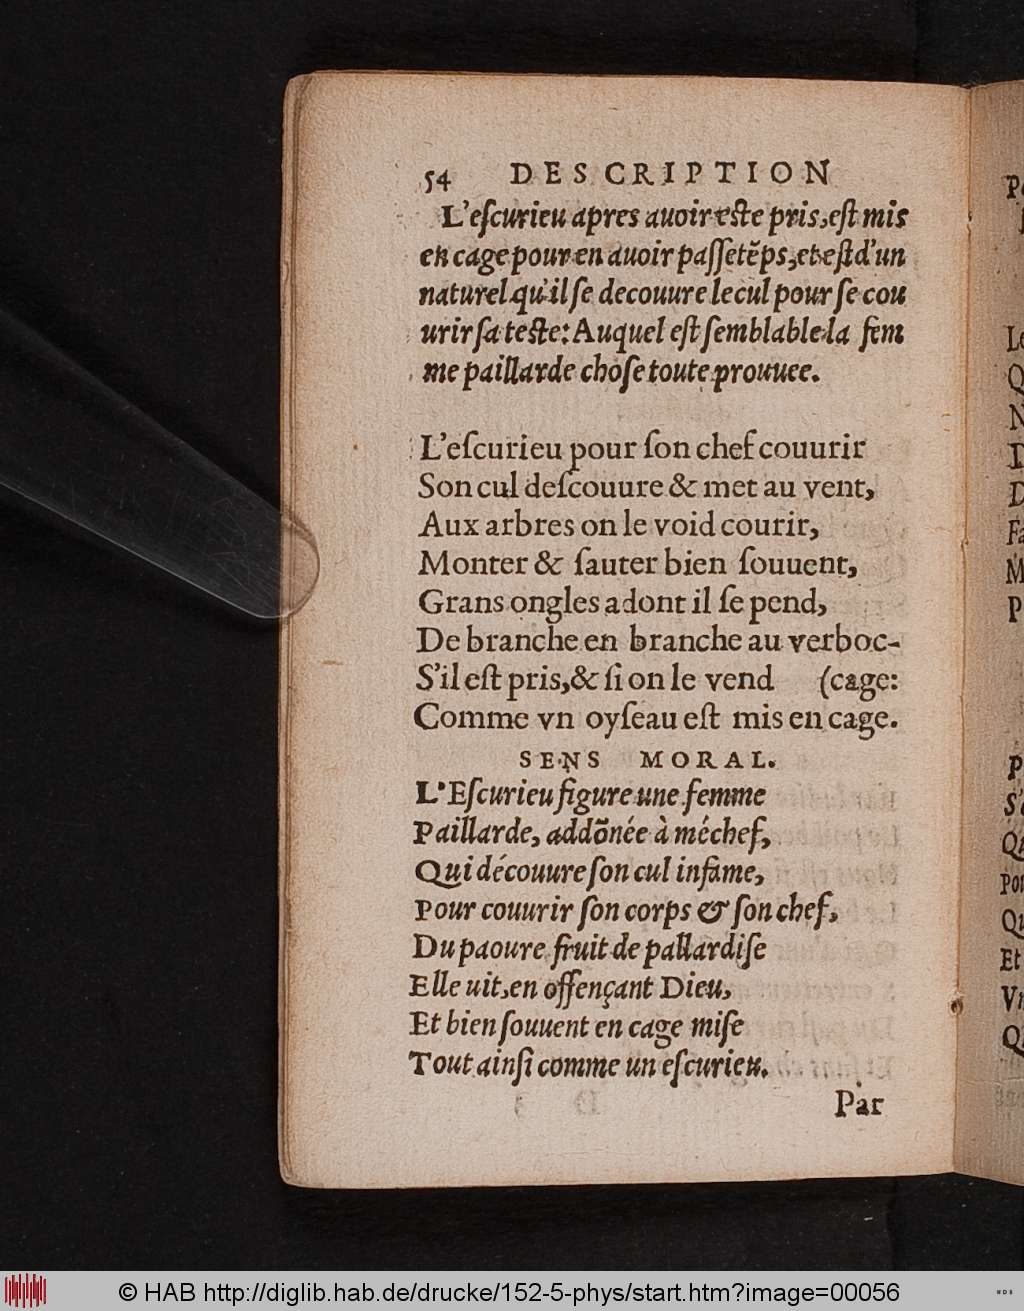 54 DESCRIPTION
L'eſcurieu apres auoir eſte pris, eſt mis
en cage pour en auoir paſſetẽps, et eſt d'un
naturel qu'il ſe decouure le cul pour ſe cou
urir ſa teſte: Auquel eſt ſemblable la fem
me paillarde choſe toute prouuee.
L'eſcurieu pour ſon chef couurir
Son cul deſcouure & met au vent,
Aux arbres on le void courir,
Monter & ſauter bien ſouuent,
Grans ongles a dont il ſe pend,
De branche en branche au verboc-
S'il eſt pris, & ſi on le vend (cage:
Comme vn oyſeau eſt mis en cage.
SENS MORAL.
L'Eſcurieu figure une femme
Paillarde, addõnée à méchef,
Qui découure ſon cul infame,
Pour couurir ſon corps & ſon chef,
Du paoure fruit de pallardiſe
Elle uit, en offençant Dieu,
Et bien ſouuent en cage miſe
Tout ainſi comme un eſcurieu.
Par
© HAB http://diglib.hab.de/drucke/152-5-phys/start.htm?image=00056